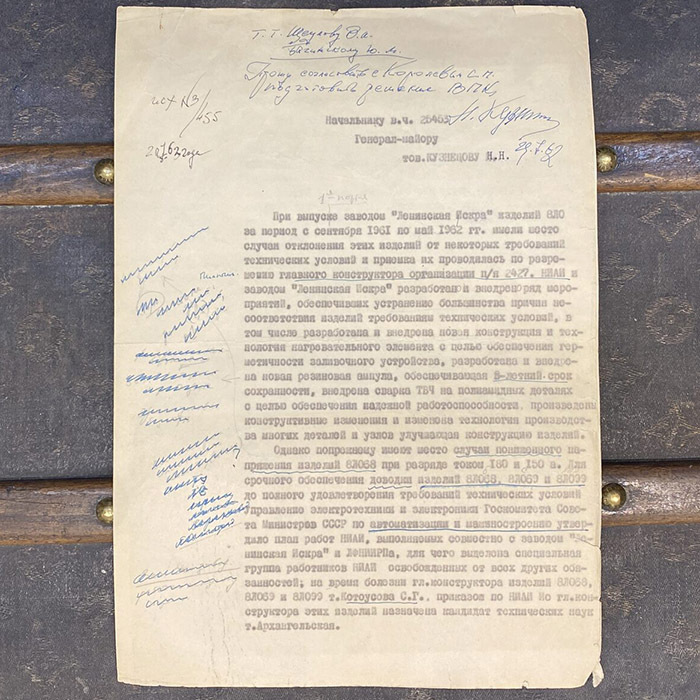 Т.Т. Шеулову В.А.
Багинскому Ю.М.
Прошу согласовать с Королевым С.П.
подготовив решение ВПК
исх №3
/455
Начальнику в.ч. 25463
Генерал-майору
тов. КУЗНЕЦОВУ Н.Н.
1й отдел
При выпуске заводом "Ленинская Искра" изделий 8Л0
за период с сентября 1961 по май 1962 гг. имели место
случаи отклонения этих изделий от некоторых требований
технических условий и приемка их проводилась по разре-
шению главного конструктора организации п/я 2427. НИАИ и
заводом "Ленинская Искра" разработан и внедрен ряд меро-
приятий, обеспечивших устранение большинства причин не-
соответствия изделий требованиям технических условий, в
том числе разработана и внедрена новая конструкция и тех-
нология нагревательного элемента с целью обеспечения гер-
метичности заливочного устройства, разработана и внедре-
на новая резиновая ампула, обеспечивающая 8-летний срок
сохранности, внедрена сварка ТВЧ на полиамидных деталях
с целью обеспечения надежной работоспособности, произведены
конструктивные изменения и изменена технология производст-
ва многих деталей и узлов улучшающая конструкцию изделий.
Однако попрежнему имеют место случаи пониженного на-
пряжения изделий 8Л068 при разряде током 180 и 150 а. Для
срочного обеспечения доводки изделий 8Л068, 8Л069 и 8Л099
до полного удовлетворения требований технических условий
Управление электротехники и электроники Госкомитета Сове-
та Министров СССР по автоматизации и машиностроению утвер-
дило план работ НИАИ, выполняемых совместно с заводом "Ле-
нинская Искра" и ЛЕНИИРПа, для чего выделена специальная
группа работников НИАИ освобожденных от всех других обя-
занностей; на время болезни гл.конструктора изделий 8Л068,
8Л069 и 8Л099 т.Котоусова С.Г., приказом по НИАИ ИО гл.кон-
структора этих изделий назначена кандидат технических наук
т.Архангельская.